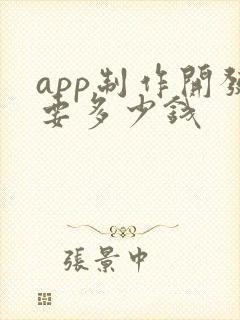 app制作開發
要多少钱
張景中